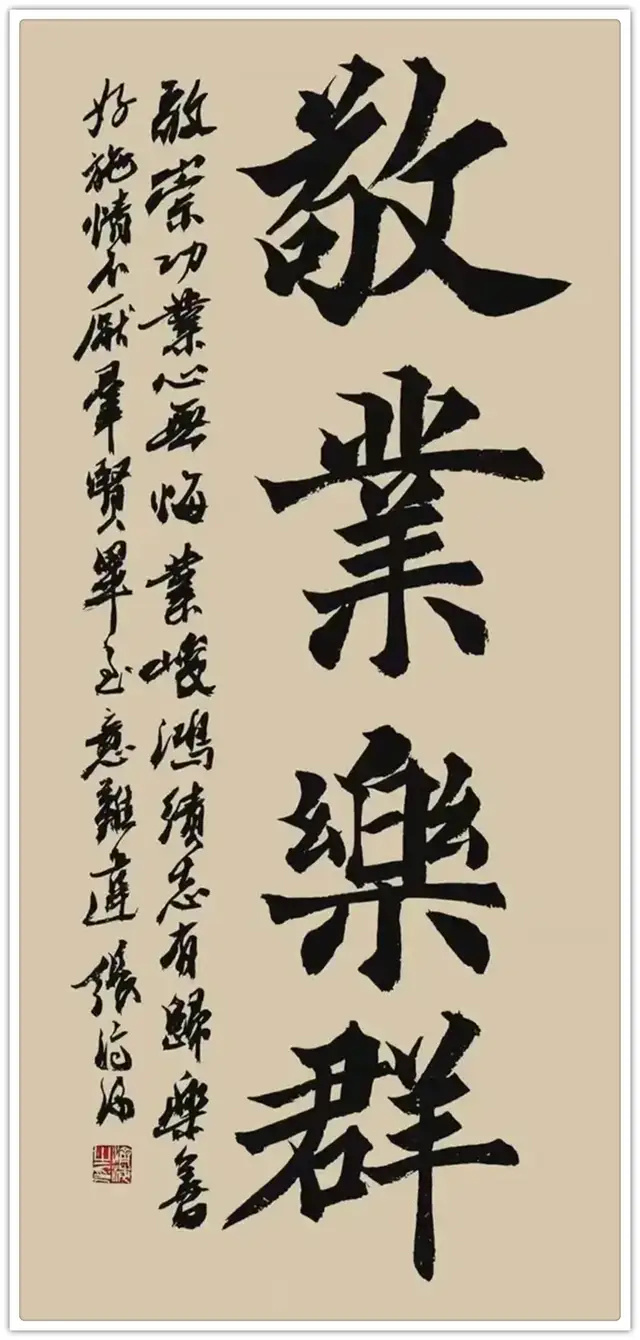 敬業樂群
敬崇功業心無悔業峻鴻績志有歸樂善
好施情不厭羣賢畢至意難違張